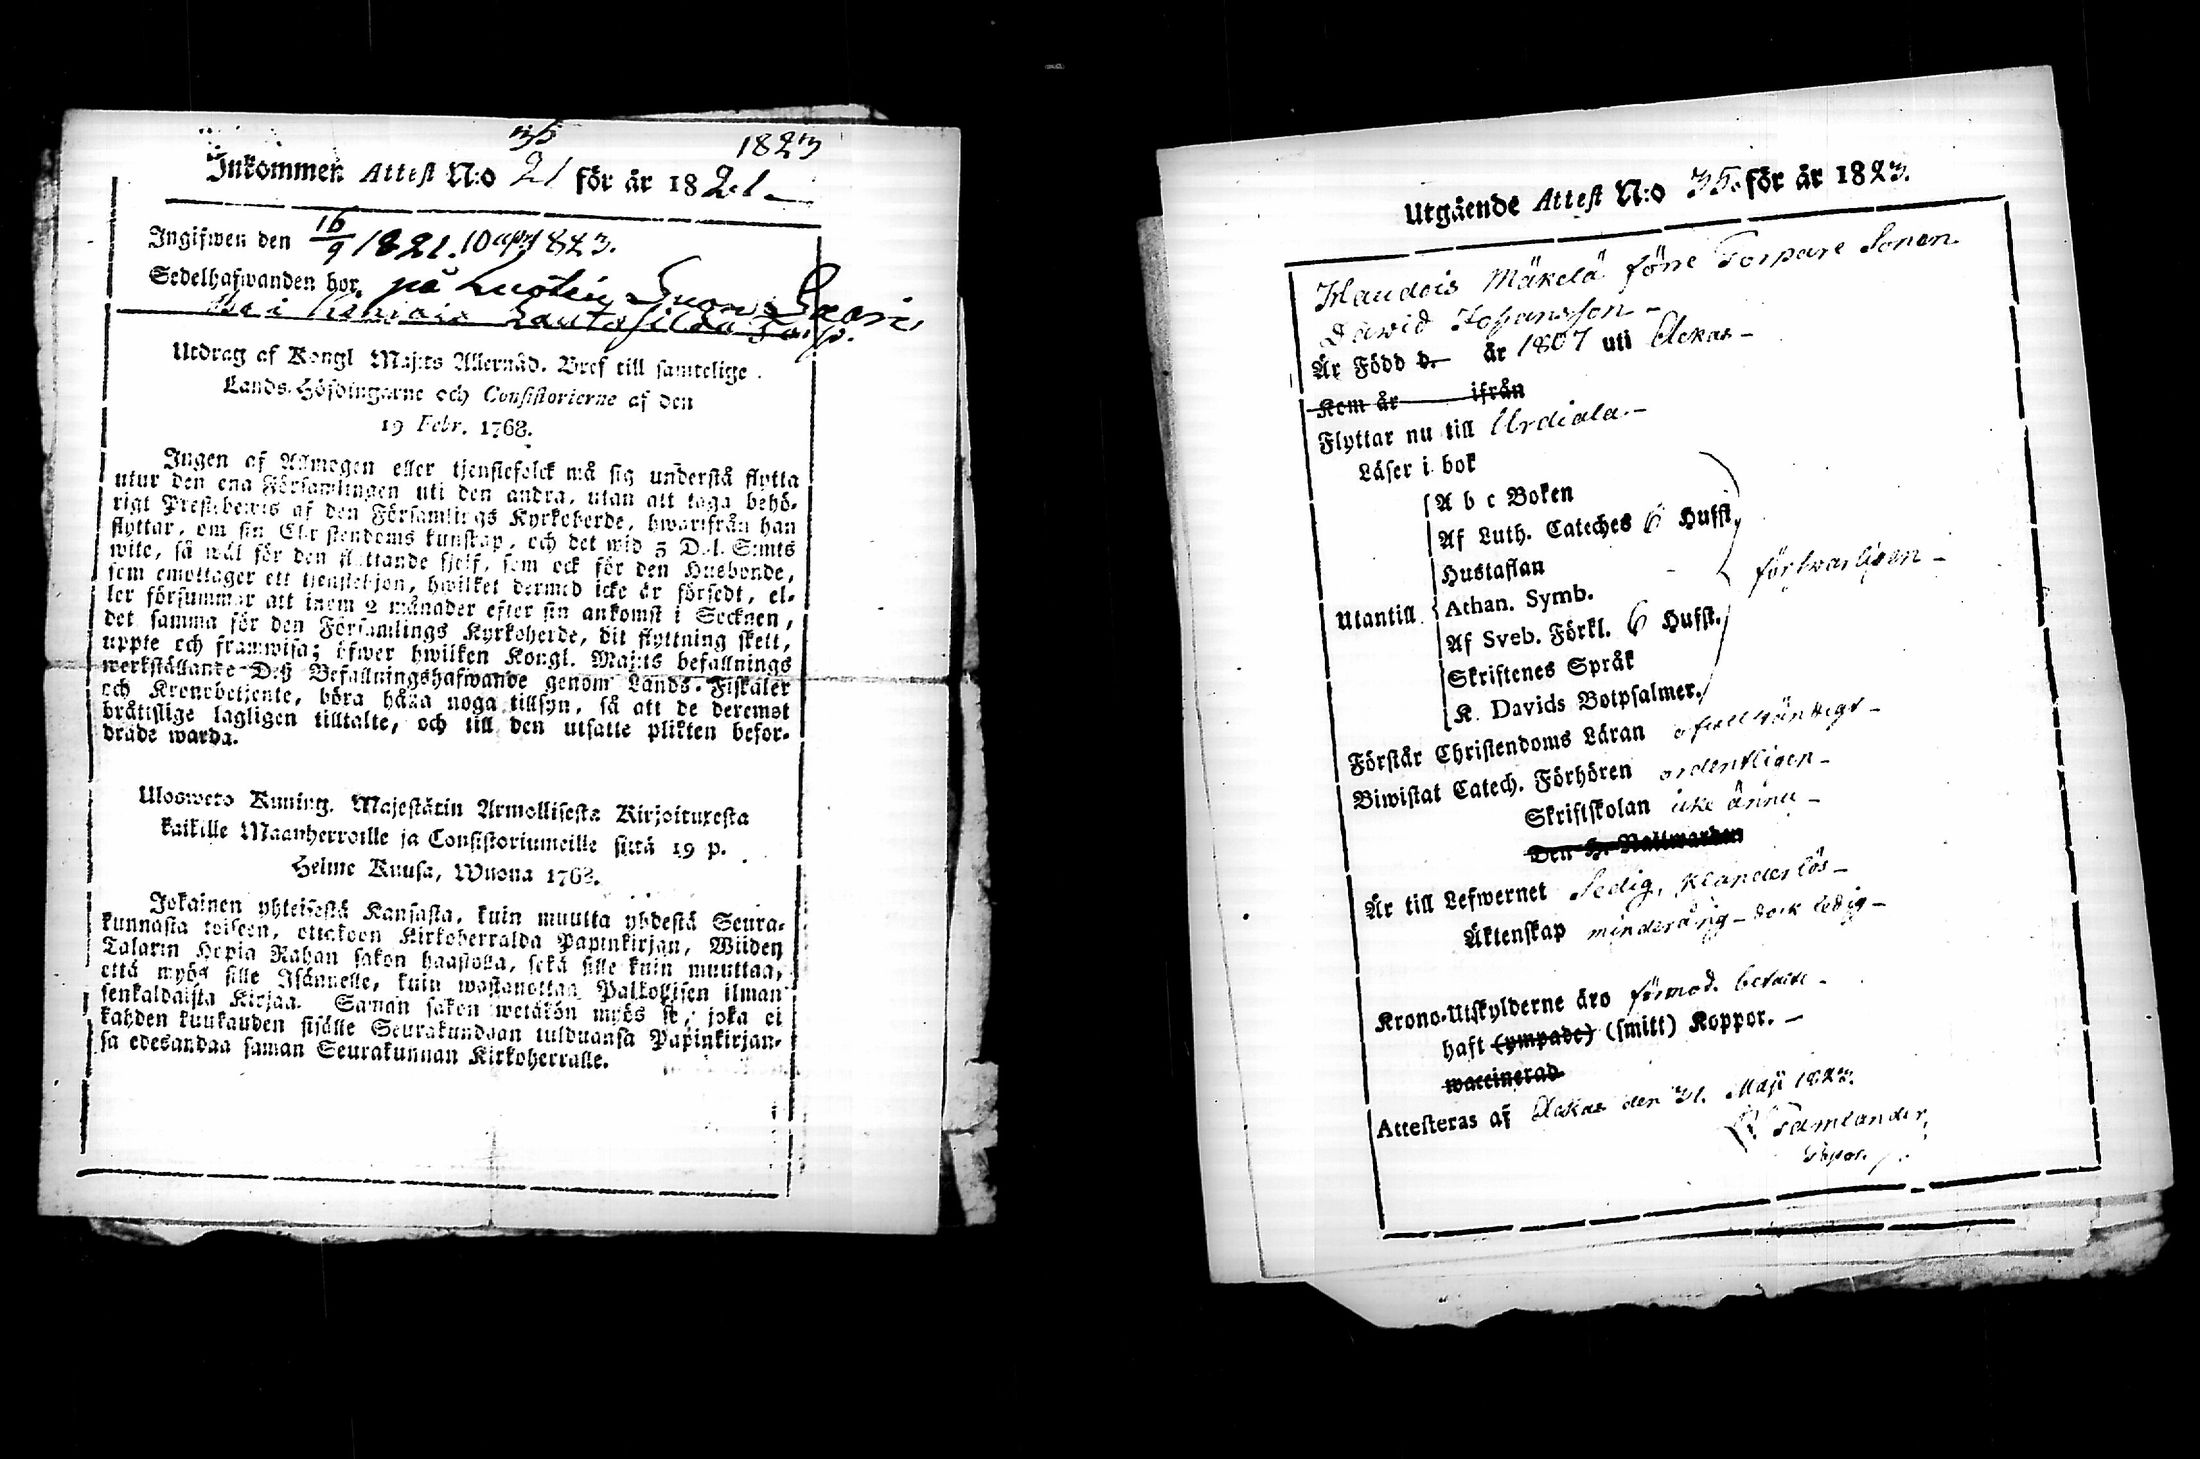 35 1823
Inkommen Attest N:o 21 för år 1821
Ingifwen den 16/9 1821. 10 apr 1823.
Sedelhafwanden bor på
Utdrag af Kongl Maj:ts Allernåd. Bref till samtelige
Lands-Höfdingarne och Consistorierne af den
19 Febr. 1768.
Ingen af Allmogen eller tjenstefolck må sig understå flytta
utur den ena Församlingen uti den andra, utan att taga behö-
rigt Prestebewis af den Församlings Kyrkoherde, hwarifrån han
flyttar, om sin Christendoms kunskap, och det wid 5 Dal. S:mts
wite, så wäl för den flyttande sjelf, som ock för den Husbonde,
som emottager ett tjenstehjon, hwilket dermed icke är försedt, el-
ler försummar att inom 2 månader efter sin ankomst i Socknen,
det samma för den Församlings Kyrkoherde, dit flyttning skett,
uppte och framwisa; öfwer hwilken Kongl. Maj:ts befallnings
werkställande Deß Befallningshafwande genom Lands-Fiskaler
och Kronobetjente, böra hålla noga tillsyn, så att de deremot
bråtislige lagligen tilltalte, och till den utsatte plikten befor-
drade warda.
Ulosweto Kuning. Majestätin Armollisesta Kirjoituxesta
kaikille Maanherroille ja Consistoriumeille siitä 19 p.
Helme Kuusa, Wuona 1768.
Jokainen yhteisestä Kansasta, kuin muulta yhdestä Seura-
kunnasta toiseen, ottakoon Kirkoherralda Papinkirjan, Wiiden
Talarin Hopia Rahan sakon haastolla, sekä sille kuin muuttaa,
että myös sille Isännelle, kuin wastanottaa Palkollisen ilman
senkaldaista Kirjaa. Saman sakon wetäkön myös se, joka ei
kahden kuukauden sisälle Seurakundaan tulduansa Papinkirjan-
sa edesandaa saman Seurakunnan Kirkoherralle.
Utgående Attest N:o 35. för år 1823.
Klaudois Mäkelä förre Torpare Sonen
Dawid Johansson
Är Född d. år 1807 uti Ackas
Kom år ifrån
Flyttar nu till Urdiala
Läser i bok
A b c Boken
Af Luth. Cateches 6 Hufst.
Hustaflan
Utantill Athan. Symb. förswarligen
Af Sveb. Förkl. 6 Hufst.
Skriftenes Språk
K. Davids Botpsalmer.
Förstår Christendoms Läran ofullständigt
Biwistat Catech. Förhören ordentligen
Skriftskolan icke ännu
Den H. Nattwarden
Är till Lefwernet Sedig, klanderlös
Äktenskap minderårig - dock ledig
Krono-Utskylderne äro förmod. betalte
haft (ympade) (smitt) Koppor.
waccinerad
Attesteras af Ackas den 31. Maji 1823.
Tamlander